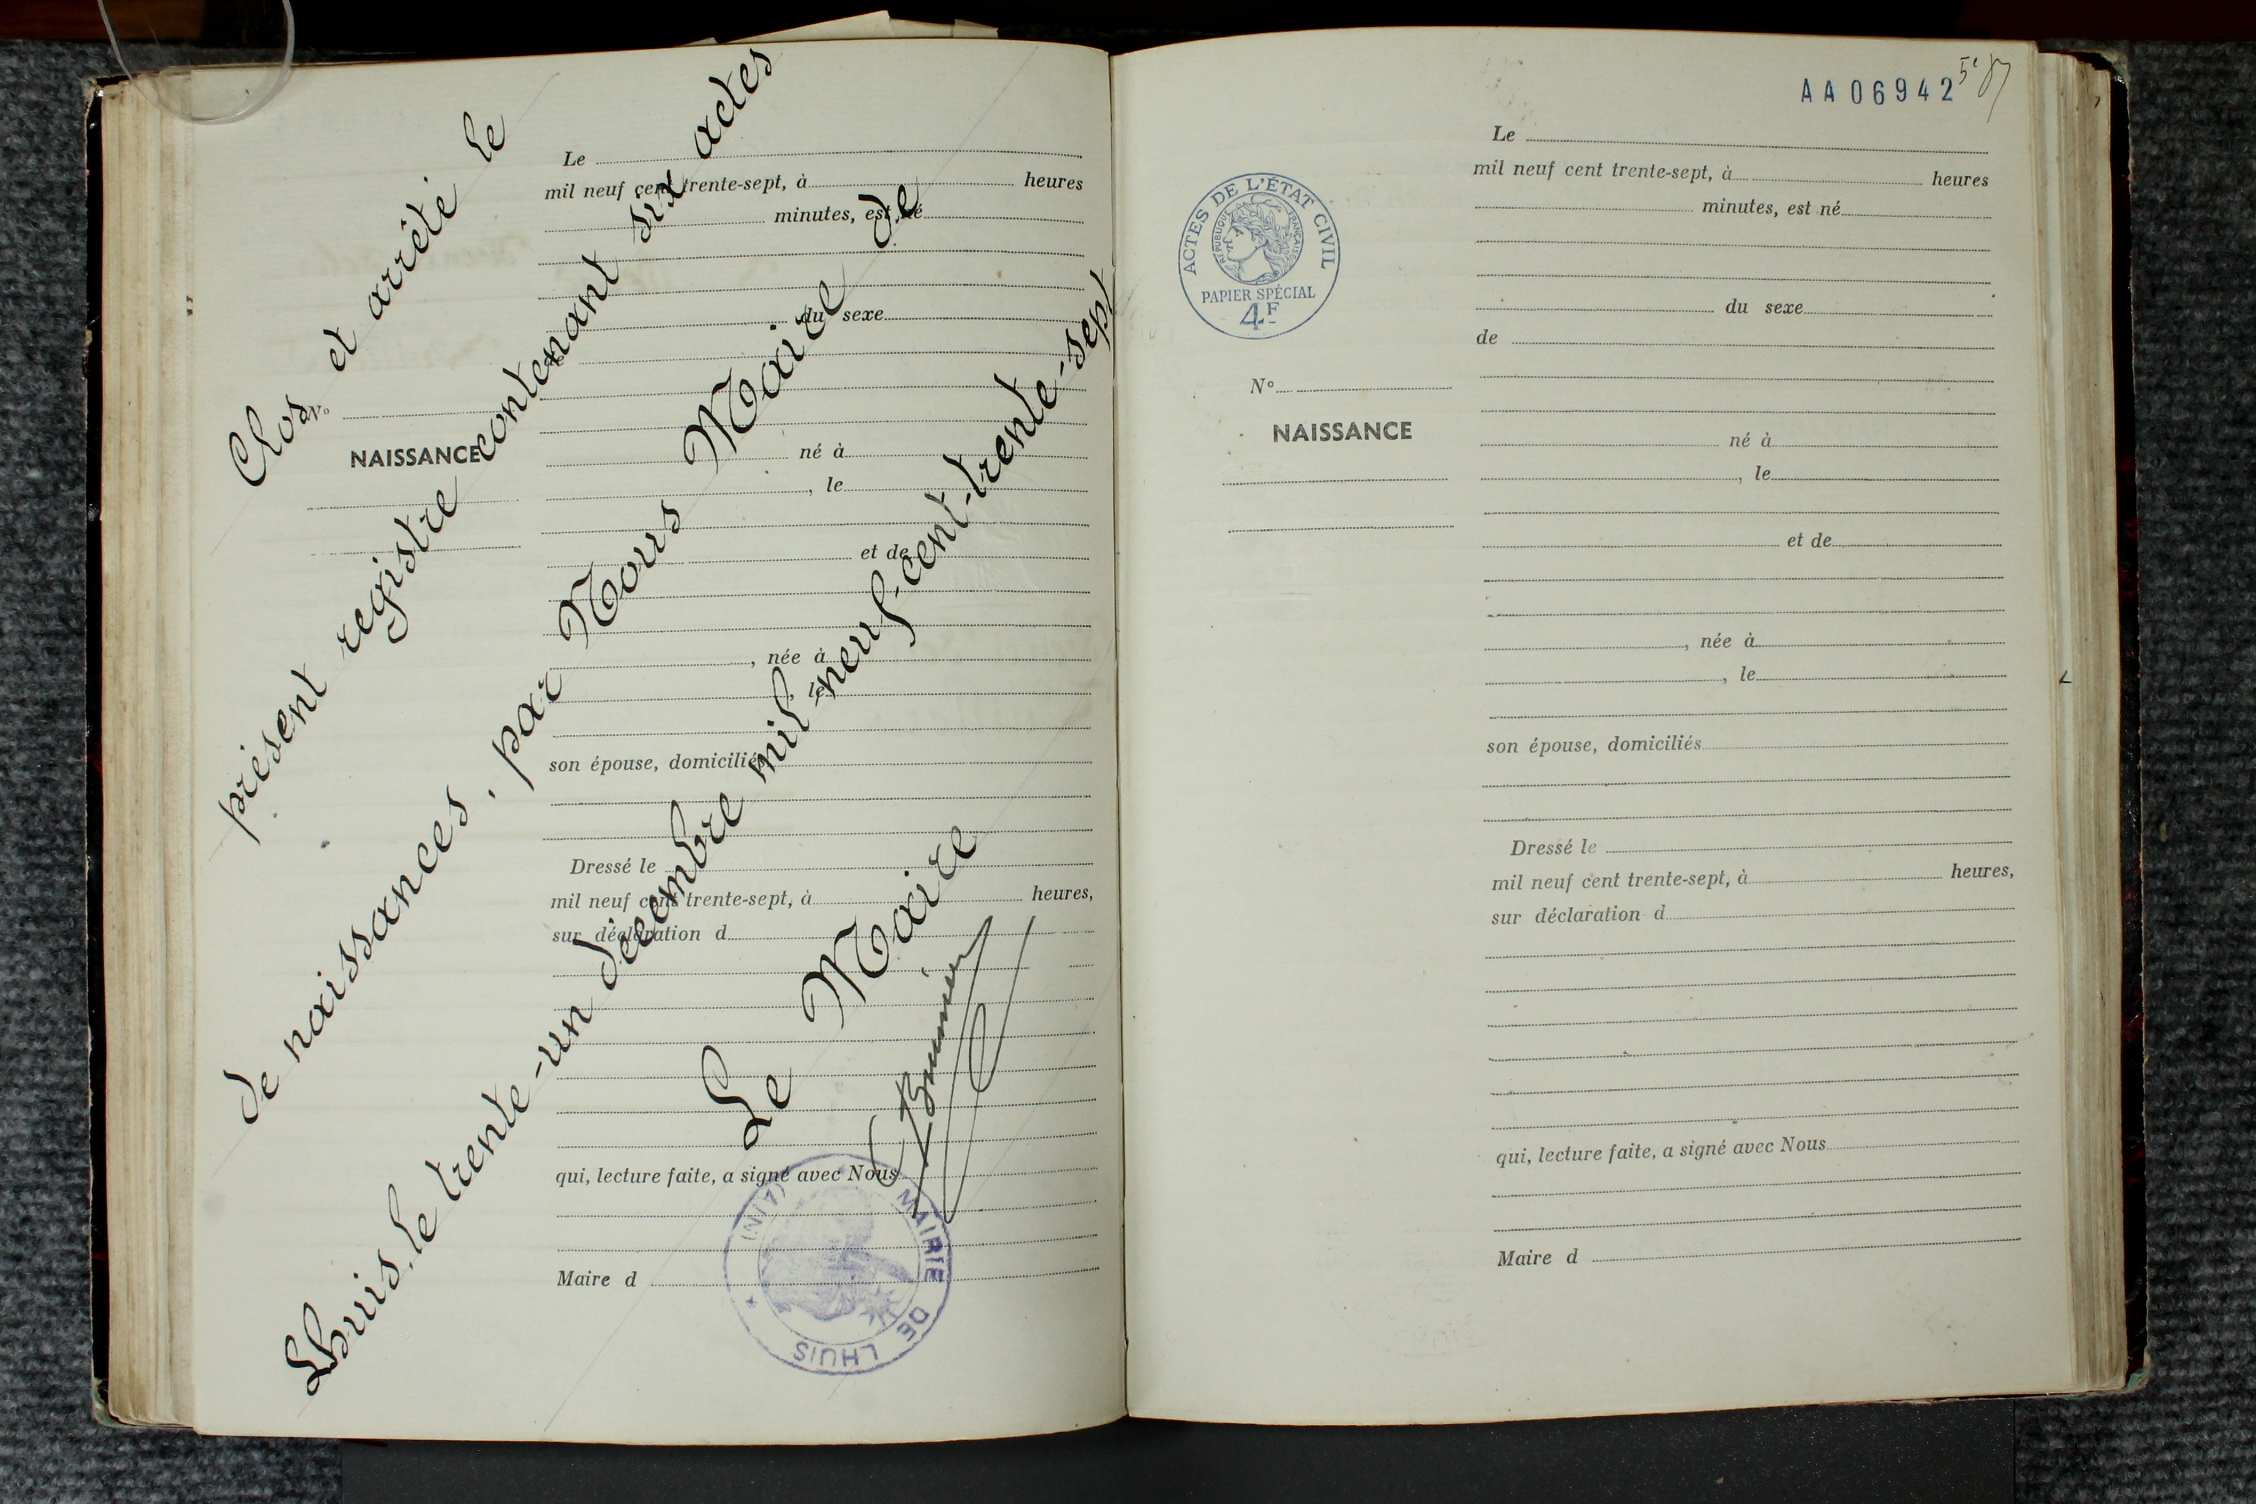 Clos et arrêté le
présent registre contenant six actes
de naissances, par Nous Maire de
Lhuis, le trente-un décembre mil-neuf-cent-trente-sept
Le Maire
Le
mil neuf cent trente-sept, à heures
minutes, est né
du sexe
de
N°
NAISSANCE
né à
, le
et de
, née à
, le
son épouse, domiciliés
Dressé le
mil neuf cent trente-sept, à heures,
sur déclaration d
qui, lecture faite, a signé avec Nous
Maire d
MAIRIE DE LHUIS
AA06942
ACTES DE L'ÉTAT CIVIL
RÉPUBLIQUE FRANÇAISE
PAPIER SPÉCIAL
4F
Le
mil neuf cent trente-sept, à heures
minutes, est né
du sexe
de
N°
NAISSANCE
né à
, le
et de
, née à
, le
son épouse, domiciliés
Dressé le
mil neuf cent trente-sept, à heures,
sur déclaration d
qui, lecture faite, a signé avec Nous
Maire d